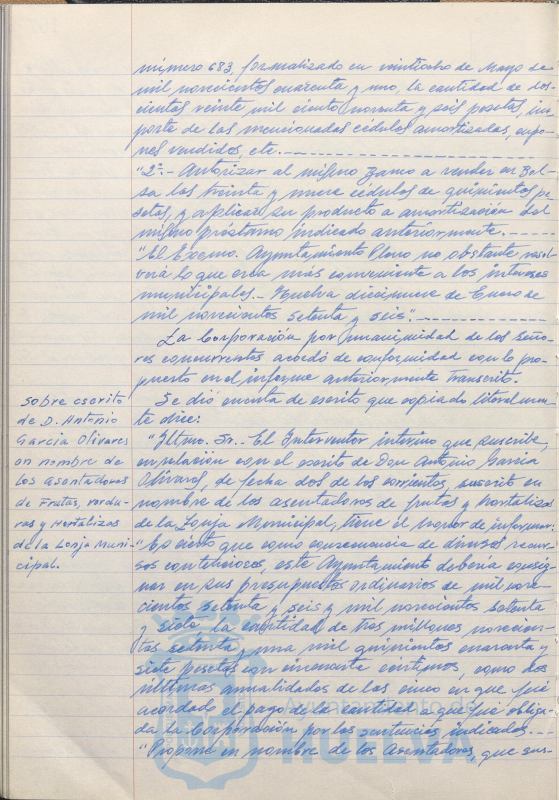 número 683, formalizado en veintiocho de Mayo de
mil novecientos cuarenta y uno, la cantidad de dos-
cientas veinte mil ciento noventa y seis pesetas, im-
porte de las mencionadas cédulas amortizadas, cupo-
nes vendidos, etc.
"2º.- Autorizar al mismo Banco a vender en Bol-
sa las treinta y nueve cédulas de quinientas pe-
setas, y aplicar su producto a amortización del
mismo préstamo indicado anteriormente.
"El Excmo. Ayuntamiento Pleno no obstante resol-
verá lo que crea más conveniente a los intereses
municipales.- Huelva diecinueve de Enero de
mil novecientos setenta y seis".
La Corporación por unanimidad de los seño-
res concurrentes acordó de conformidad con lo pro-
puesto en el informe anteriormente transcrito.
Sobre escrito
de D. Antonio
Garcia Olivares
en nombre de
los asentadores
de Frutas, verdu-
ras y Hortalizas
de la Lonja Muni-
cipal.
Se dió cuenta de escrito que copiado literalmen-
te dice:
"Iltmo. Sr.- El Interventor interino que suscribe,
en relación con el escrito de Don Antonio Garcia
Olivares, de fecha dos de los corrientes, suscrito en
nombre de los asentadores de frutas y hortalizas
de la Lonja Municipal, tiene el honor de informar:
"Es cierto que como consecuencia de diversos recur-
sos contenciosos, este Ayuntamiento debería consig-
nar en sus presupuestos ordinarios de mil nove-
cientos setenta y seis y mil novecientos setenta
y siete la cantidad de tres millones novecien-
tas setenta y una mil quinientas cuarenta y
siete pesetas con cincuenta céntimos, como dos
últimas anualidades de las cinco en que fué
acordado el pago de la cantidad a que fué obliga-
da la Corporación por las sentencias indicadas.
"Propone en nombre de los Asentadores, que sus-
Ayuntamiento de
HUELVA